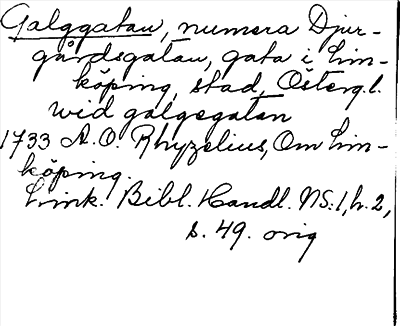 Galggatan, numera Djur-
gårdsgatan, gata i Lin-
köping, stad, Österg.l.
wid galgegatan
1733 A.O. Rhyzelius, Om Lin-
köping.
Link. Bibl. Handl. NS. 1, h. 2,
s. 49. orig